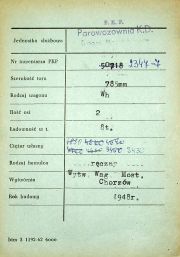 P. K. P.
Jednostka służbowa
Parowozownia K.D.
Nr inwentarza PKP 2344-7
Szerokość toru 785mm
Rodzaj wagonu Wh
Ilość osi 2
Ładowność w t. 8t.
Ciężar własny 3430
Rodzaj hamulca ręczny
Wytwórnia Wytw. Wag. Most.
Chorzów
Rok budowy 1948r.